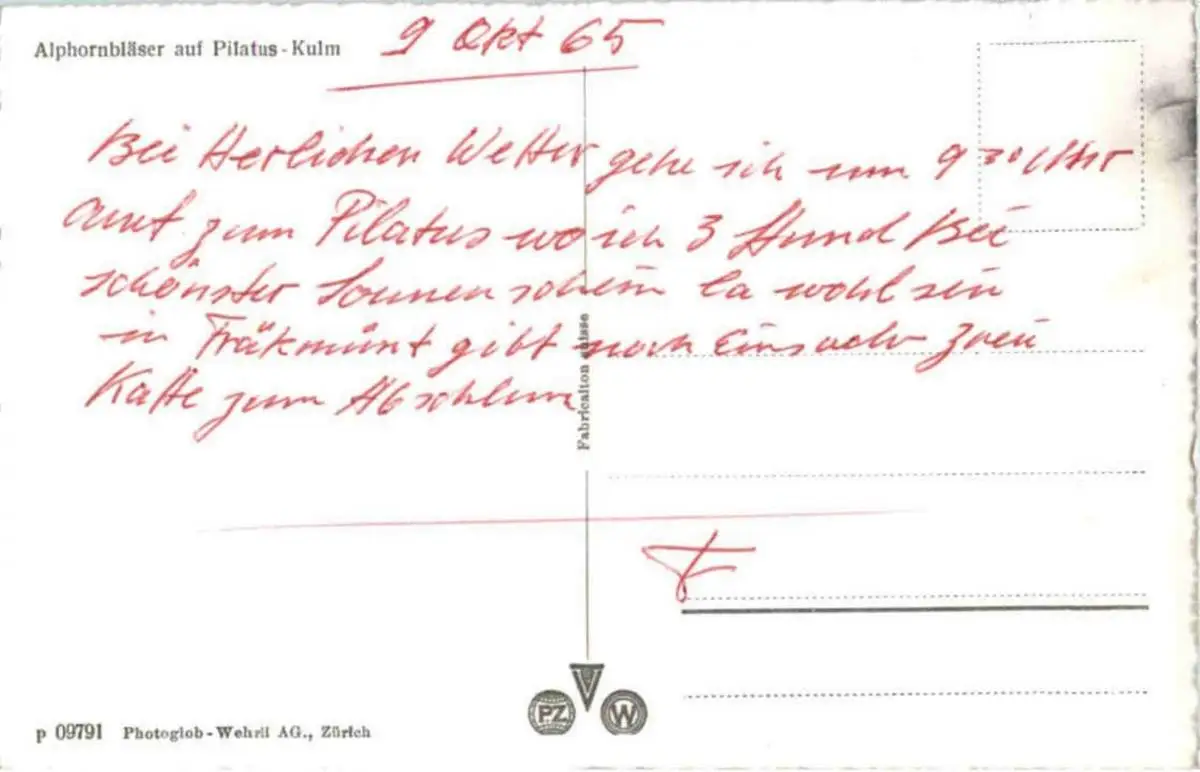 Alphornbläser auf Pilatus-Kulm
9 Okt 65
Bei Herlichen Wetter gehe ich um 9 30 Uhr
auf zum Pilatus wo ich 3 Stund Bei
schönster Sonnen schein wohl
in Fräkmünt gibt noch Eins zwei
Kaffe zum Abschlum
Fabrication suisse
PZ V W
p 09791 Photoglob-Wehrli AG., Zürich